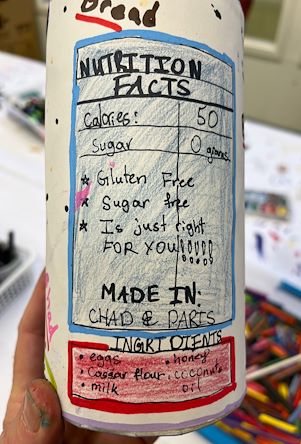 Bread
NUTRITION
FACTS
Calories: 50
Sugar 0 grams
★ Gluten Free
★ Sugar free
★ Is just right
FOR YOU!!!!!
MADE IN:
CHAD & PARIS
INGRIDIENTS
• eggs • honey
• Cassar flour • coconut
• milk oil